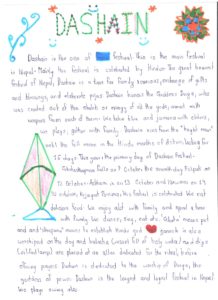 DASHAIN
Dashain is for one of festival. This is the main festival
in Nepal. Mainly this festival is celebrated by Hindus. The great
festival of Nepal, Dashain is a time for family reunions, exchange of gifts
and blessings, and elaborate pujas. Dashain honors the Goddess Durga, who
was created out of the shakti or energy of all the gods, armed with
weapons from each of them. We take tika and jamara with elders,
we play, gather with family. Dashain runs from the "bright moon"
until the full moon in the Hindu months of
15 days. This year the primary day of Dashain Festival
October
12 October
October, Bijaya Dashami, the festival is celebrated. We eat
delicious food. We enjoy alot with family and spend a time
with family. We dance, sing, eat etc. means pot
and means to establish Hindu god ganesh is also
worshiped on the day and kalasha (vessel full of holy water) and diyo
are placed at an alter dedicated for the ritual, before
pages Dashain is dedicated to the worship of Durga, the
goddess of power. Dashain is the longest and largest festival in Nepal.
We plays swing also.